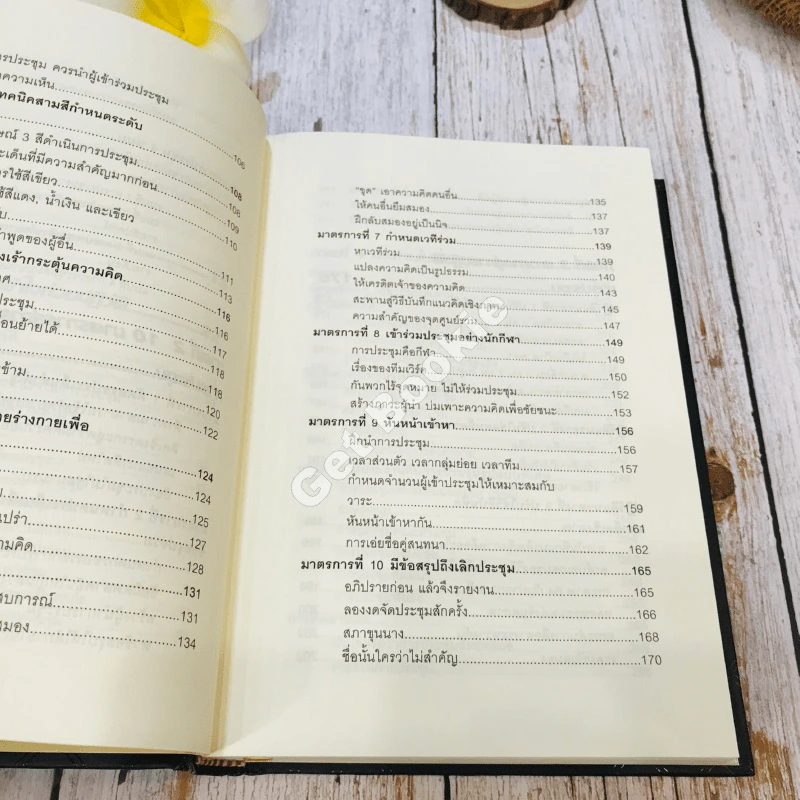 การประชุม ควรนำผู้เข้าร่วมประชุม
ความเห็น
ทคนิคสามสีกำหนดระดับ
106
ษณ์ 3 สีดำเนินการประชุม
ะเด็นที่มีความสำคัญมากก่อน 108
รใช้สีเขียว 108
ช้สีแดง, น้ำเงิน และเขียว 109
บ 110
ำพูดของผู้อื่น 111
งเร้ากระตุ้นความคิด 113
ศ 116
ประชุม 116
ื่อนย้ายได้ 117
118
ข้าม 118
120
122
ายร่างกายเพื่อ
124
124
ย 125
เปร่า 127
ามคิด 128
131
รบการณ์ 131
สมอง 134
"ขุด" เอาความคิดคนอื่น 135
ให้คนอื่นยืมสมอง 137
ฝึกลับสมองอยู่เป็นนิจ 137
มาตรการที่ 7 กำหนดเวทีร่วม 139
หาเวทีร่วม 139
แปลงความคิดเป็นรูปธรรม 140
ให้เครดิตเจ้าของความคิด 143
สะพานสู่วิธีบันทึกแนวคิดเชิงภาพ 145
ความสำคัญของจุดศูนย์รวม 147
มาตรการที่ 8 เข้าร่วมประชุมอย่างนักกีฬา 149
การประชุมคือกีฬา 149
เรื่องของทีมเวิร์ค 150
กันพวกไร้จุดหมาย ไม่ให้ร่วมประชุม 152
สร้างภาวะผู้นำ บ่มเพาะความคิดเพื่อชัยชนะ 153
มาตรการที่ 9 หันหน้าเข้าหา 156
ฝึกนำการประชุม 156
เวลาส่วนตัว เวลากลุ่มย่อย เวลาทีม 157
กำหนดจำนวนผู้เข้าประชุมให้เหมาะสมกับ
วาระ 159
หันหน้าเข้าหากัน 161
การเอ่ยชื่อคู่สนทนา 162
มาตรการที่ 10 มีข้อสรุปถึงเลิกประชุม 165
อภิปรายก่อน แล้วจึงรายงาน 165
ลองงดจัดประชุมสักครั้ง 166
สภาขุนนาง 168
ชื่อนั้นใครว่าไม่สำคัญ 170
Get Bookie